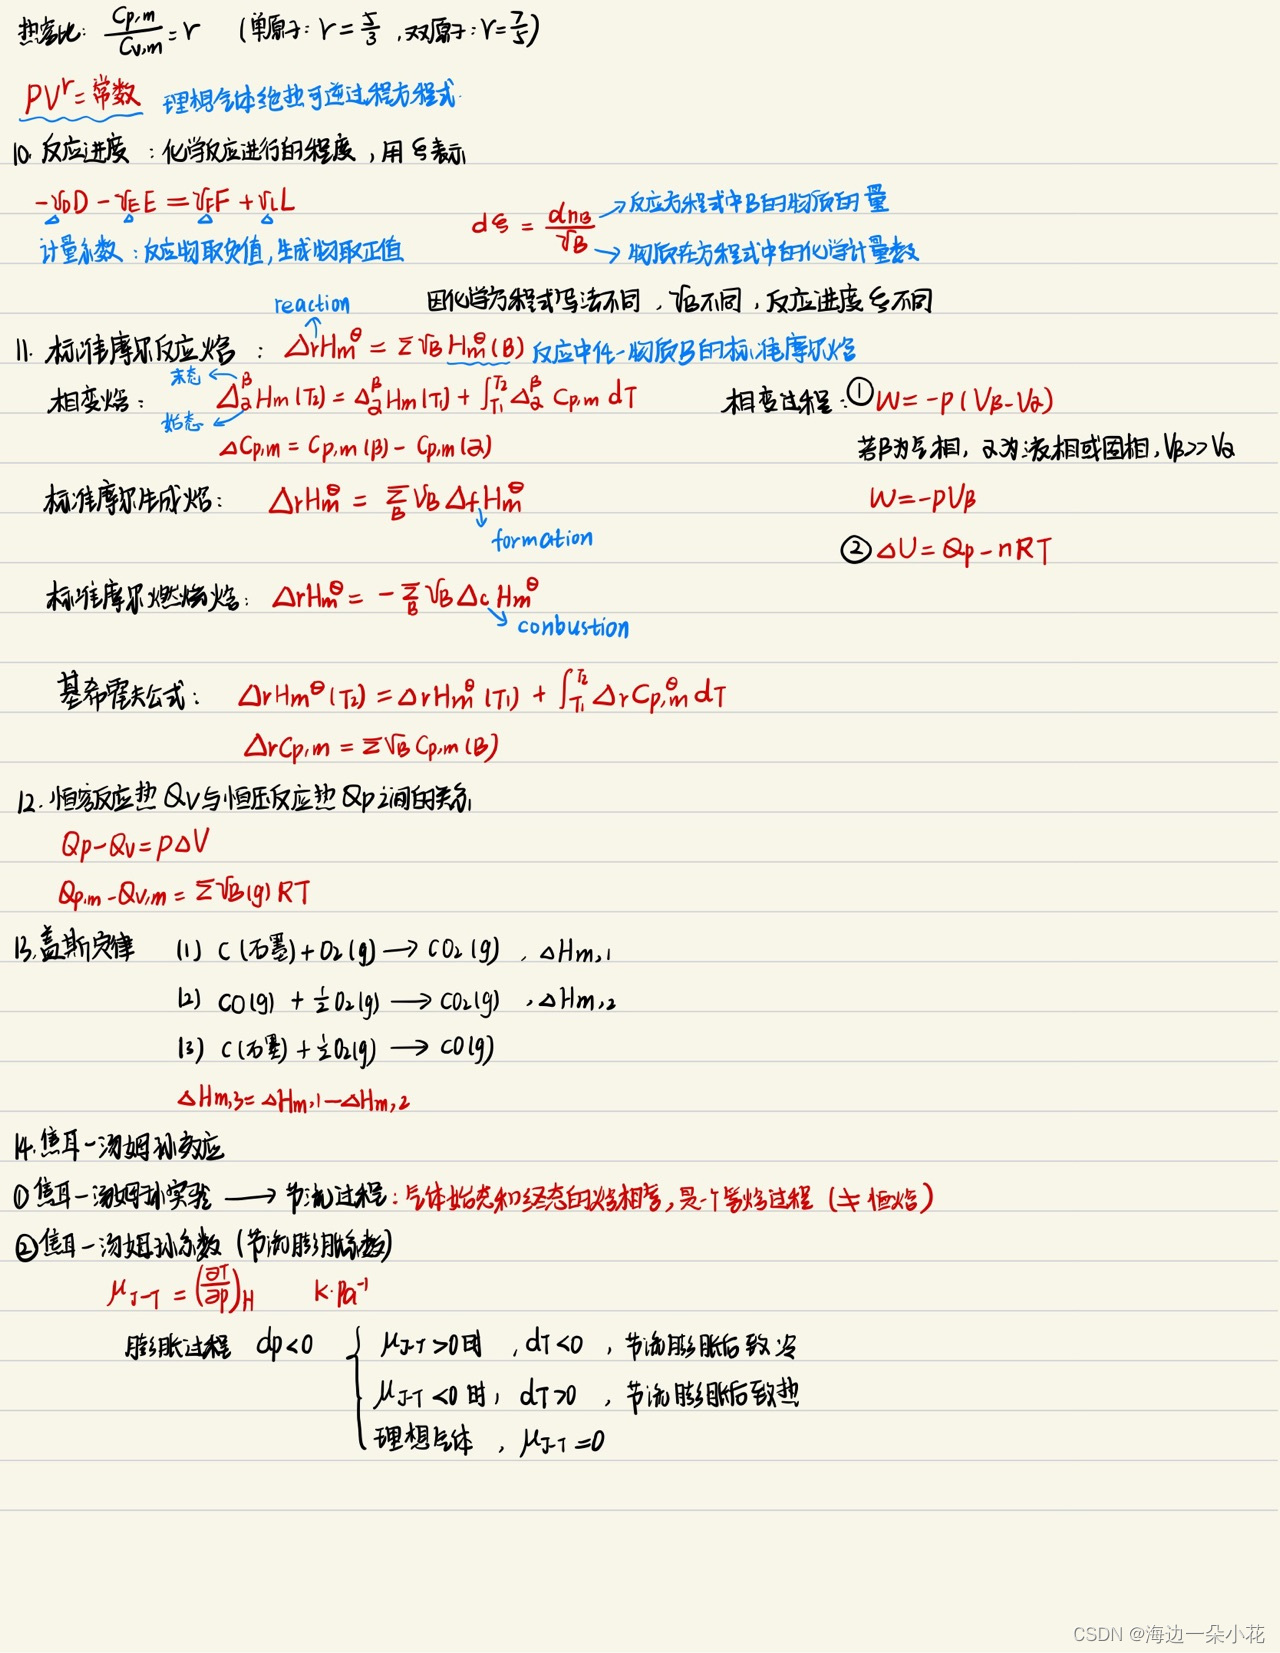 热容比: Cp,m/Cv,m = r (单原子: r = 5/3 , 双原子: r = 7/5)
PVʳ = 常数 理想气体绝热可逆过程方程式.
10. 反应进度 : 化学反应进行的程度 , 用 ξ 表示
-νD D - νE E = νF F + νL L
计量系数 : 反应物取负值, 生成物取正值
dξ = dnB/νB
→ 反应方程式中B的物质的量
→ 物质在方程式中的化学计量数
因化学方程式写法不同 , νB不同 , 反应进度 ξ 不同
reaction
11. 标准摩尔反应焓 : ΔrHm^θ = Σ νB Hm^θ (B) 反应中任一物质B的标准摩尔焓
相变焓: Δα^β Hm (T2) = Δα^β Hm (T1) + ∫T1^T2 Δα^β Cp,m dT
末态
始态
ΔCp,m = Cp,m (β) - Cp,m (α)
相变过程 : ① W = -p (Vβ - Vα)
若β为气相, α为液相或固相, Vβ >> Vα
W = -pVβ
② ΔU = Qp - nRT
标准摩尔生成焓: ΔrHm^θ = ΣB νB Δf Hm^θ
formation
标准摩尔燃烧焓: ΔrHm^θ = - ΣB νB Δc Hm^θ
conbustion
基希霍夫公式: ΔrHm^θ (T2) = ΔrHm^θ (T1) + ∫T1^T2 ΔrCp,m^θ dT
ΔrCp,m = Σ νB Cp,m (B)
12. 恒容反应热 Qv 与恒压反应热 Qp 之间的关系
Qp - Qv = pΔV
Qp,m - Qv,m = Σ νB(g) RT
13. 盖斯定律 (1) C (石墨) + O2 (g) → CO2 (g) , ΔHm,1
(2) CO(g) + ½ O2 (g) → CO2(g) , ΔHm,2
(3) C (石墨) + ½ O2(g) → CO(g)
ΔHm,3 = ΔHm,1 - ΔHm,2
14. 焦耳-汤姆孙效应
① 焦耳-汤姆孙实验 → 节流过程 : 气体始态和终态的焓相等, 是一个等焓过程 (≠ 恒焓)
② 焦耳-汤姆孙系数 (节流膨胀系数)
μJ-T = (∂T/∂p)H K·Pa⁻¹
膨胀过程 dp<0 { μJ-T >0时 , dT<0 , 节流膨胀后致冷
μJ-T <0 时, dT>0 , 节流膨胀后致热
理想气体 , μJ-T = 0
CSDN @海边一朵小花